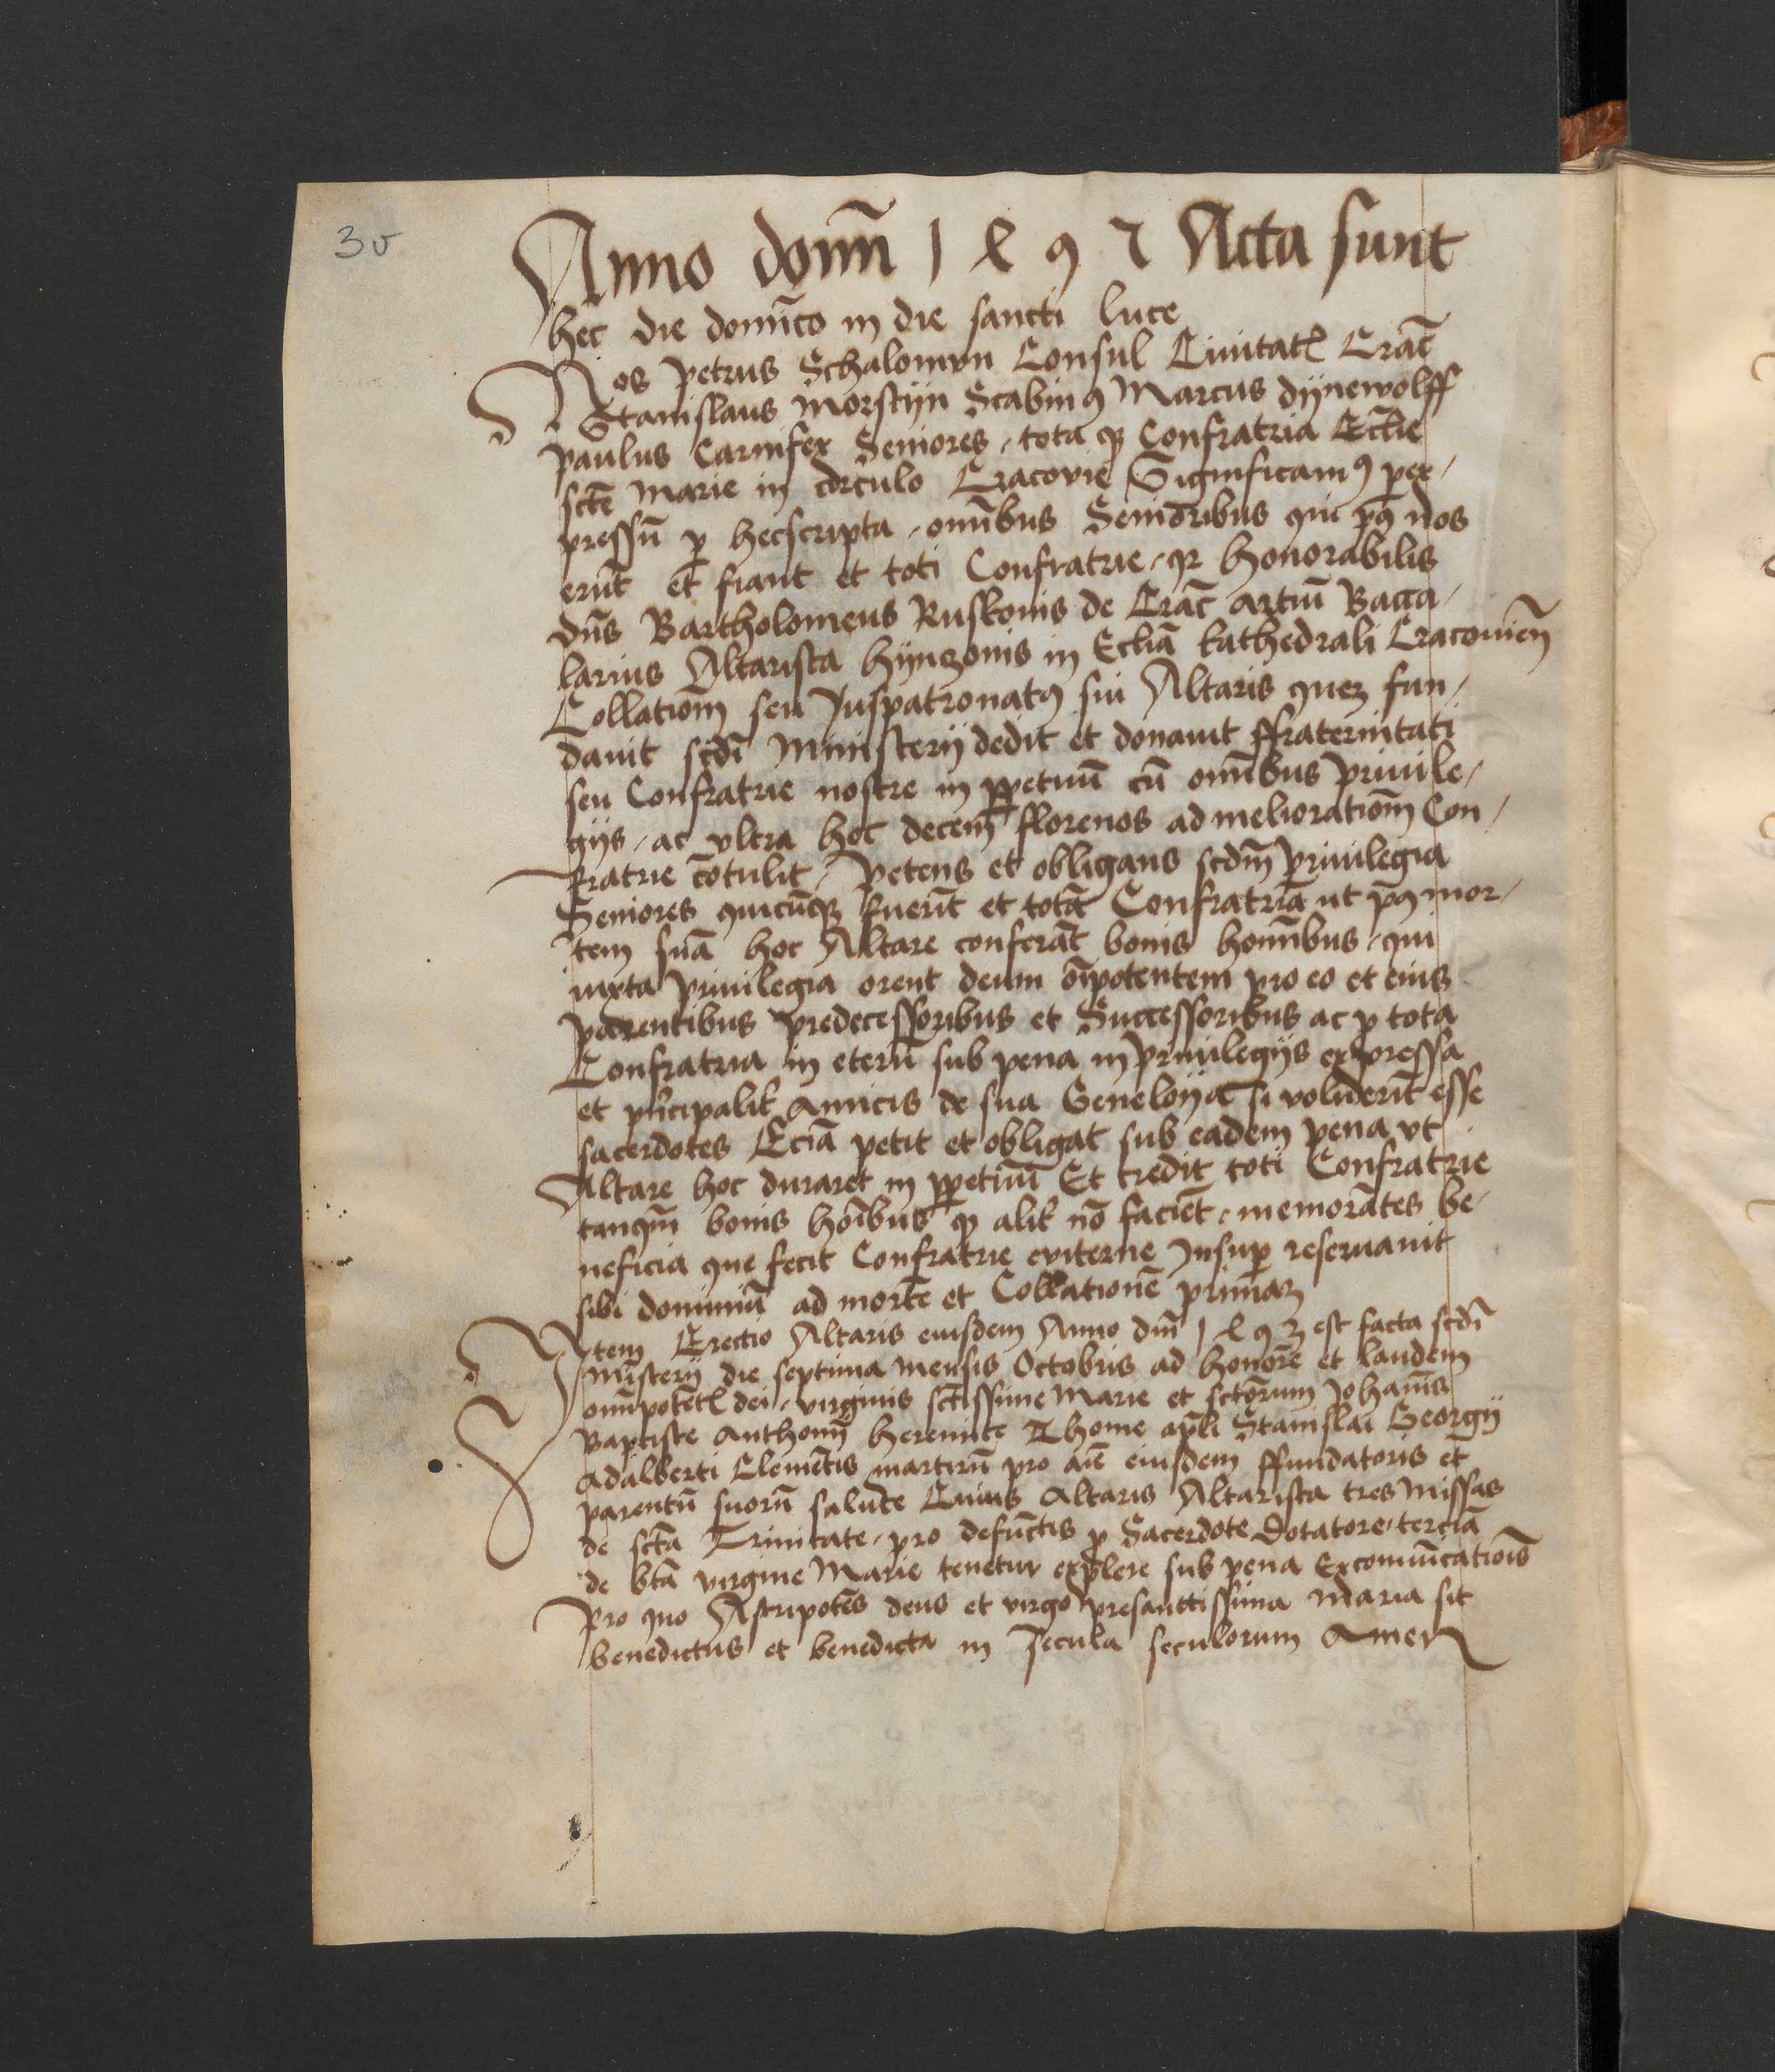 3v
Anno domī 1 ꝝ 9 7 Acta sunt
hec die domīco in die sancti luce
Nos Petrus Schalomon Consul Ciuitatꝭ Crac̄
Stanislaus Morstijn Scabinꝯ Marcus dijnewolff
Paulus Carnifex Seniores / tota qꝫ Confratria Eccl̄ie
sctē Marie in circulo Cracovie Significamꝯ per /
pressū ꝑ hec scripta / omībus Senioribus qui pꝯ nos
erūt et fiant et toti Confratrie / qꝛ honorabilis
dn̄s Bartholomeus Ruskonis de Crac̄ artiū Bacca /
larius Altarista hijnczonis in Eccliā kathedrali Cracouien̄
Collationē seu Juspatronatꝯ sui Altaris quez fun /
dauit scdī Ministerij dedit et donauit ffraternitati
seu Confratrie nostre in ꝑpetuū cū omībus Priuile /
gijs / ac vltra hoc decem florenos ad melioratiom̄ Con /
fratrie cōtulit / Petens et obligans scdm̄ Priuilegia
Seniores quicūqꝫ fuerūt et totā Confratriā ut pꝯ mor /
tem suā hoc Altare conferāt bonis homībus / qui
iuxta Priuilegia orent deum oīpotentem pro eo et eius
parentibus predecessoribus et Successoribus ac ꝑ tota
Confratria in eternū sub pena in priuilegijs expressa
et pn̄cipalit̄ Amicis de sua Genelogia si voluderīt esse
sacerdotes Eciā petit et obligat sub eadem pena vt
Altare hoc duraret in ꝑpetuū Et credit toti Confratrie
tanqm̄ bonis hoībus qꝫ alit̄ nō faciēt / memorātes be /
neficia que fecit Confratrie eviterne Insuꝑ reseruauit
sibi dominiū ad mortē et Collationē primaꝫ
Item Erectio Altaris eiusdem Anno dm̄ 1 ꝝ 9 3 est facta scdī
Mīsterij die septima mensis Octobris ad honorē et laudem
omīpotētꝭ dei / virginis sctīssime Marie et sctōrum Johānis
Baptiste Anthonij heremite Thome apl̄i Stanislai Georgij
Adalberti Clemētis martirū pro aīe eiusdem ffundatoris et
parentū suorū salute Cuius Altaris Altarista tres Missas
de sctā Trinitate / pro defūctis ꝑ Sacerdote Dotatore / terciā
de btā virgine Marie tenetur explere sub pena Excomūicatiōis
Pro quo Astripotēs deus et virgo presanctissima Maria sit
benedictus et benedicta in secula seculorum Amen